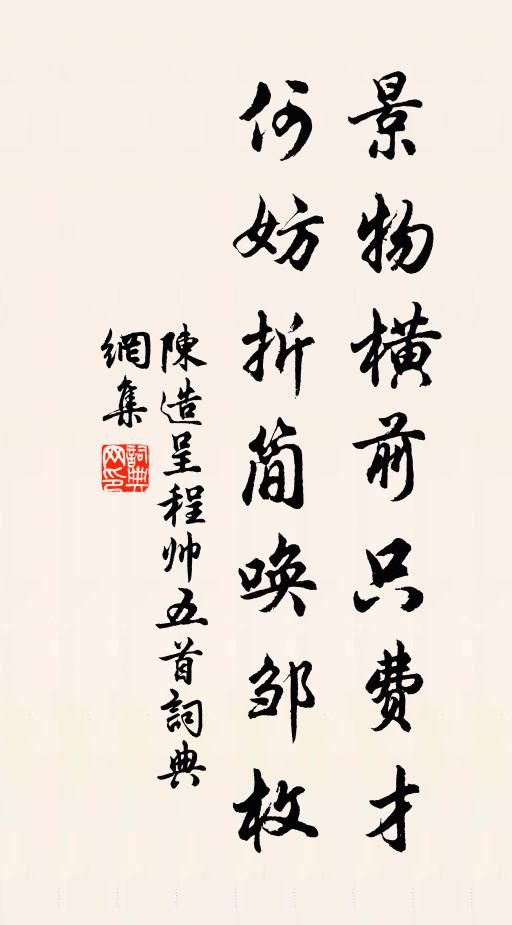 景物橫前只费才
何妨折简唤邹枚
陳造呈程帅五首詞典
網集
詞典
网印